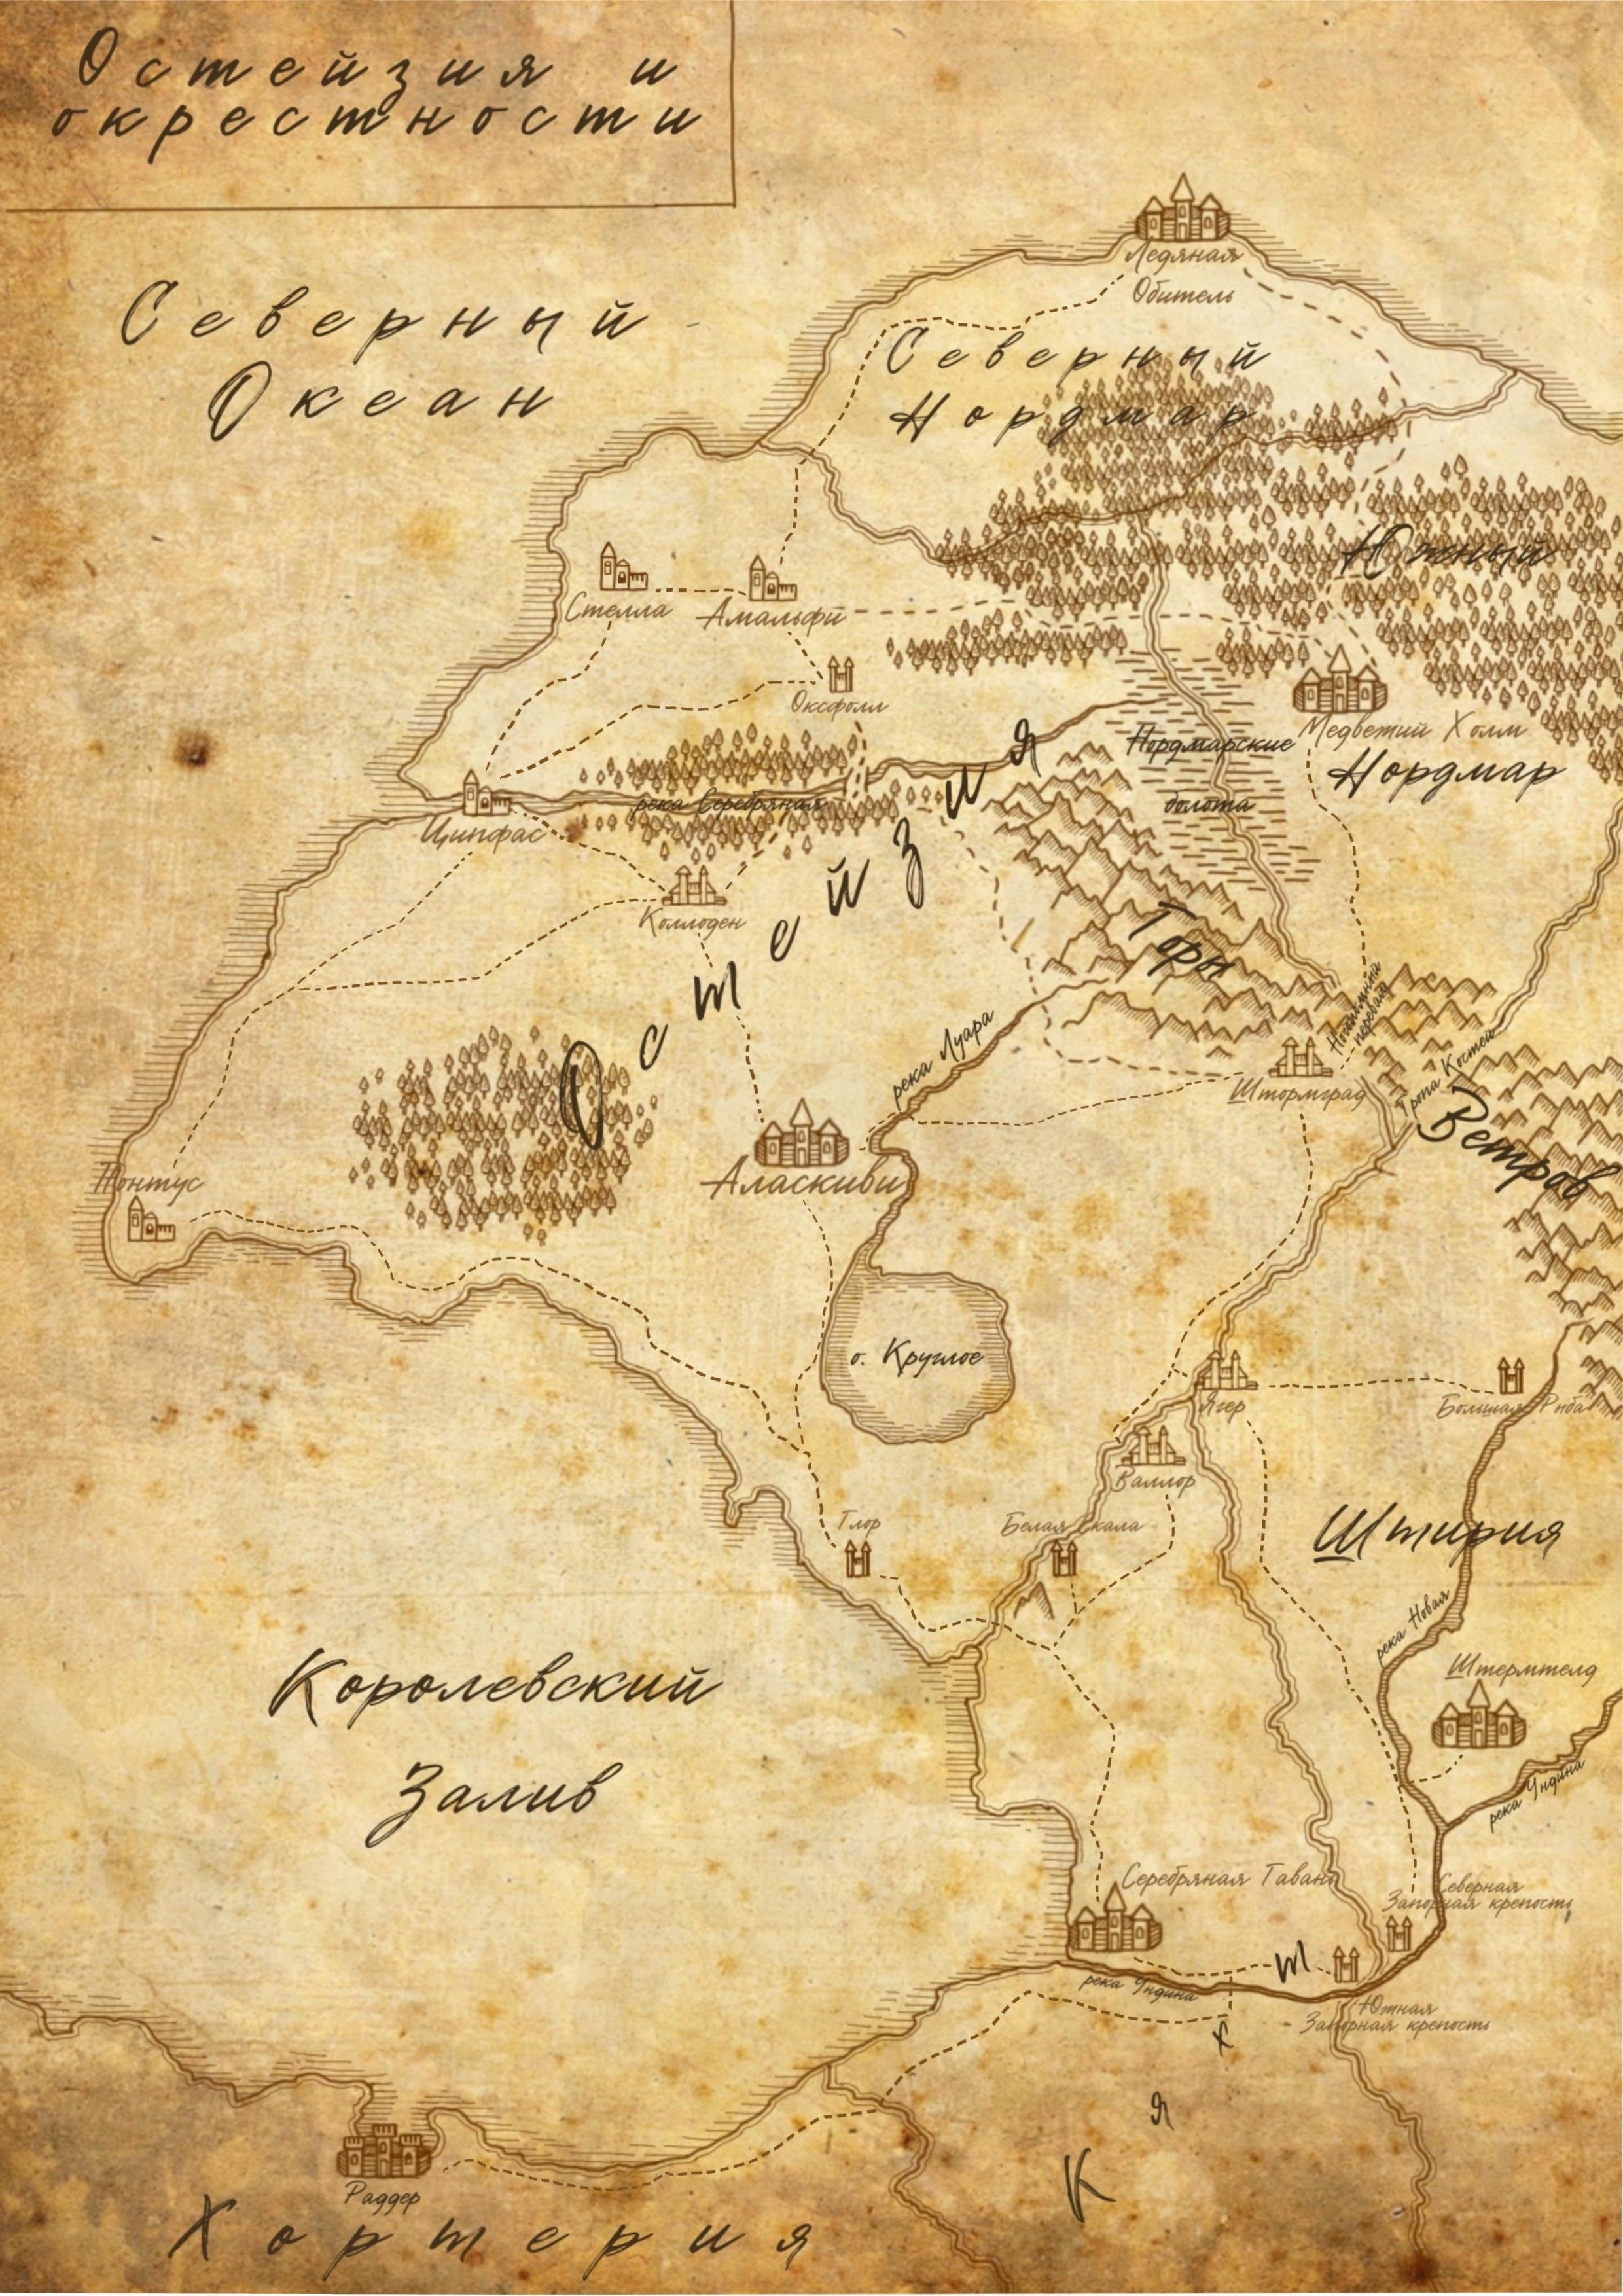 Остейзия и
окрестности
Северный
Океан
Ледяная
Обитель
Северный
Нордмар
Южный
Нордмар
Стелла
Амальфи
Оксфолл
Медветий Холм
Нордмарские
болота
река Серебряная
Ципфас
Коллоден
Остейзия
Горы
Ветров
перевал
река Луара
Штормград
Тропа Костей
Понтус
Аласкиви
о. Круглое
Ягер
Большая Рыба
Валлор
Глор
Белая Скала
Штирия
река Новая
Королевский
Залив
Штермтелд
река Ундина
Серебряная Гавань
Северная
Запорная крепость
река Ундина
Южная
Запорная крепость
К я х т
Раддер
Хортерия